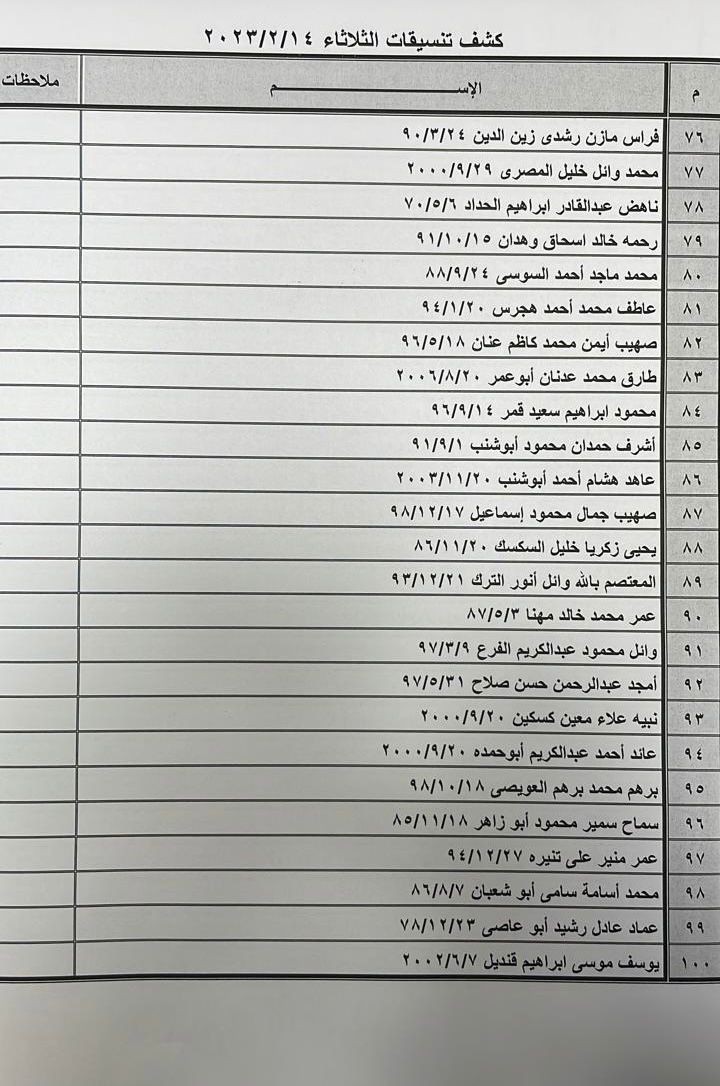 كشف تنسيقات الثلاثاء ٢٠٢٣/٢/١٤
م الإســـــــم ملاحظات
٧٦ فراس مازن رشدى زين الدين ٩٠/٣/٢٤
٧٧ محمد وائل خليل المصرى ٢٠٠٠/٩/٢٩
٧٨ ناهض عبدالقادر ابراهيم الحداد ٧٠/٥/٦
٧٩ رحمه خالد اسحاق وهدان ٩١/١٠/١٥
٨٠ محمد ماجد أحمد السوسى ٨٨/٩/٢٤
٨١ عاطف محمد أحمد هجرس ٩٤/١/٢٠
٨٢ صهيب أيمن محمد كاظم عنان ٩٦/٥/١٨
٨٣ طارق محمد عدنان أبوعمر ٢٠٠٦/٨/٢٠
٨٤ محمود ابراهيم سعيد قمر ٩٦/٩/١٤
٨٥ أشرف حمدان محمود أبوشنب ٩١/٩/١
٨٦ عاهد هشام أحمد أبوشنب ٢٠٠٣/١١/٢٠
٨٧ صهيب جمال محمود إسماعيل ٩٨/١٢/١٧
٨٨ يحيى زكريا خليل السكسك ٨٦/١١/٢٠
٨٩ المعتصم بالله وائل أنور الترك ٩٣/١٢/٢١
٩٠ عمر محمد خالد مهنا ٨٧/٥/٣
٩١ وائل محمود عبدالكريم الفرع ٩٧/٣/٩
٩٢ أمجد عبدالرحمن حسن صلاح ٩٧/٥/٣١
٩٣ نبيه علاء معين كسكين ٢٠٠٠/٩/٢٠
٩٤ عائد أحمد عبدالكريم أبوحمده ٢٠٠٠/٩/٢٠
٩٥ برهم محمد برهم العويصى ٩٨/١٠/١٨
٩٦ سماح سمير محمود أبو زاهر ٨٥/١١/١٨
٩٧ عمر منير على تنيره ٩٤/١٢/٢٧
٩٨ محمد أسامة سامى أبو شعبان ٨٦/٨/٧
٩٩ عماد عادل رشيد أبو عاصى ٧٨/١٢/٢٣
١٠٠ يوسف موسى ابراهيم قنديل ٢٠٠٢/٦/٧